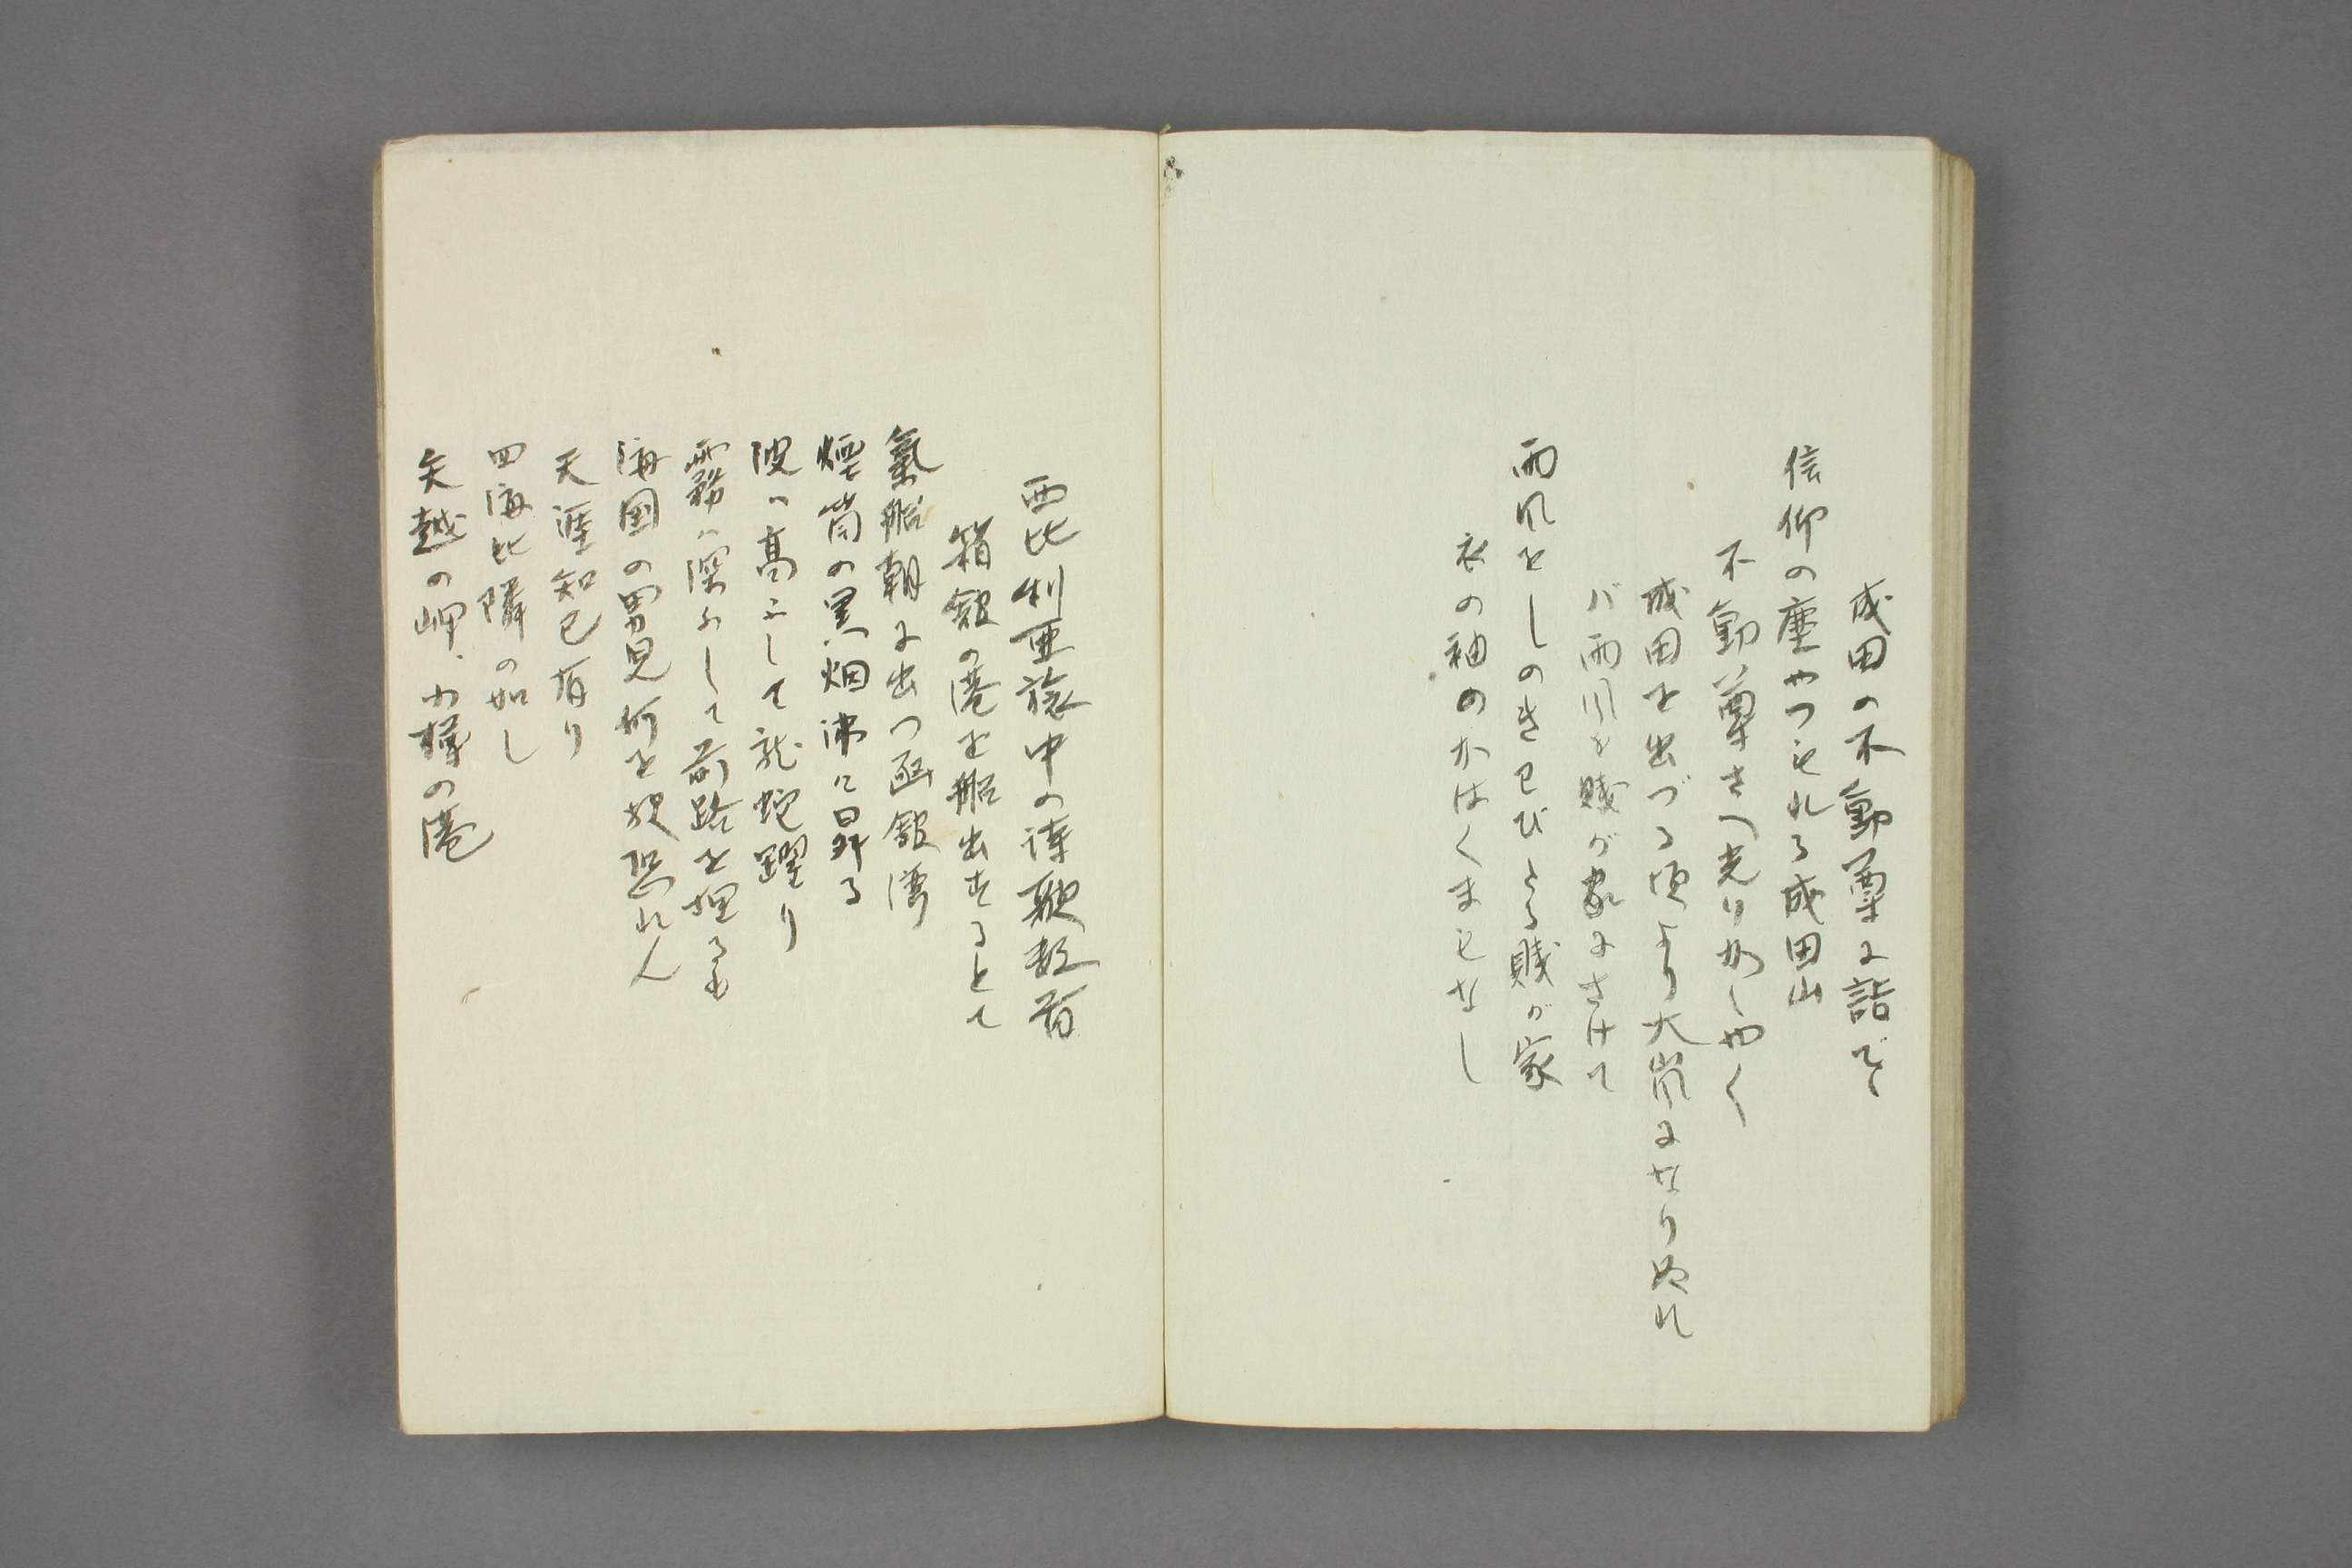 成田の不動尊に詣で
信仰の塵やつもれる成田山
不動尊さへ光りかゞやく
成田を出づる頃より大嵐になりぬれ
バ雨風を賤が家にさけて
雨風をしのきわびたる賤が家
衣の袖のかはくまもなし
西比利亜旅中の詩歌数首
箱舘の港を船出するとて
氣船朝に出つ函舘湾
煙筒の黒烟沸々昇る
波ハ高ふして龍蛇躍り
霧ハ深ふして前路を埋るも
海国の男児何を恐れん
天涯知己有り
四海比隣の如し
矢越の岬、小樽の港